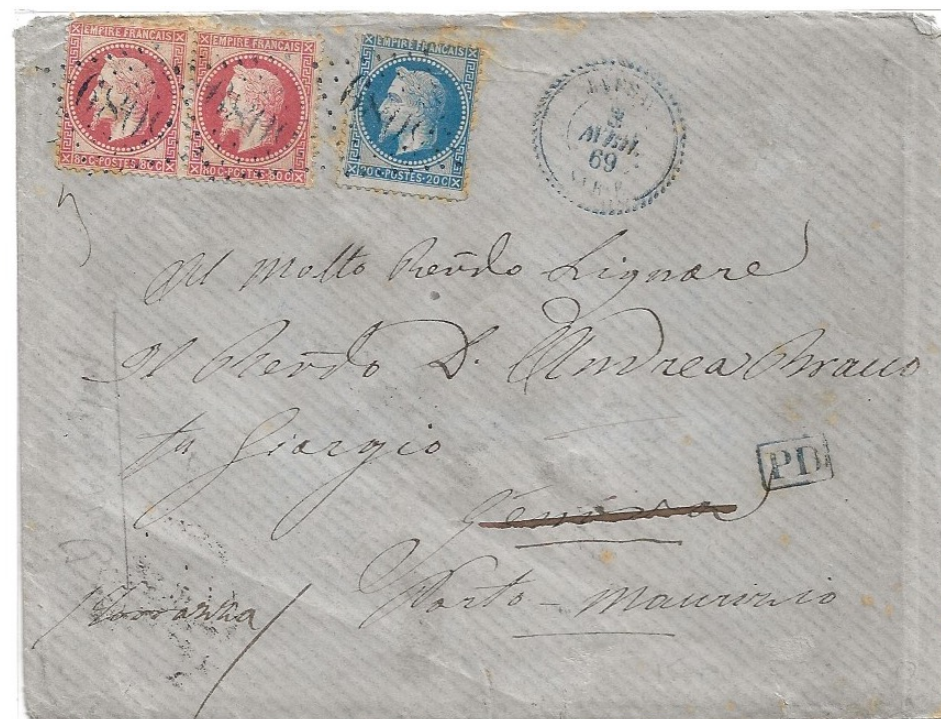 EMPIRE FRANÇAIS
80C·POSTES·80C
EMPIRE FRANÇAIS
80C·POSTES·80C
EMPIRE FRANÇAIS
20C·POSTES·20C
2
AVRIL
69
Al Molto Rendo Signore
Il Rendo D. Andrea
fu Giorgio
PD
Genova
Porto-Maurizio